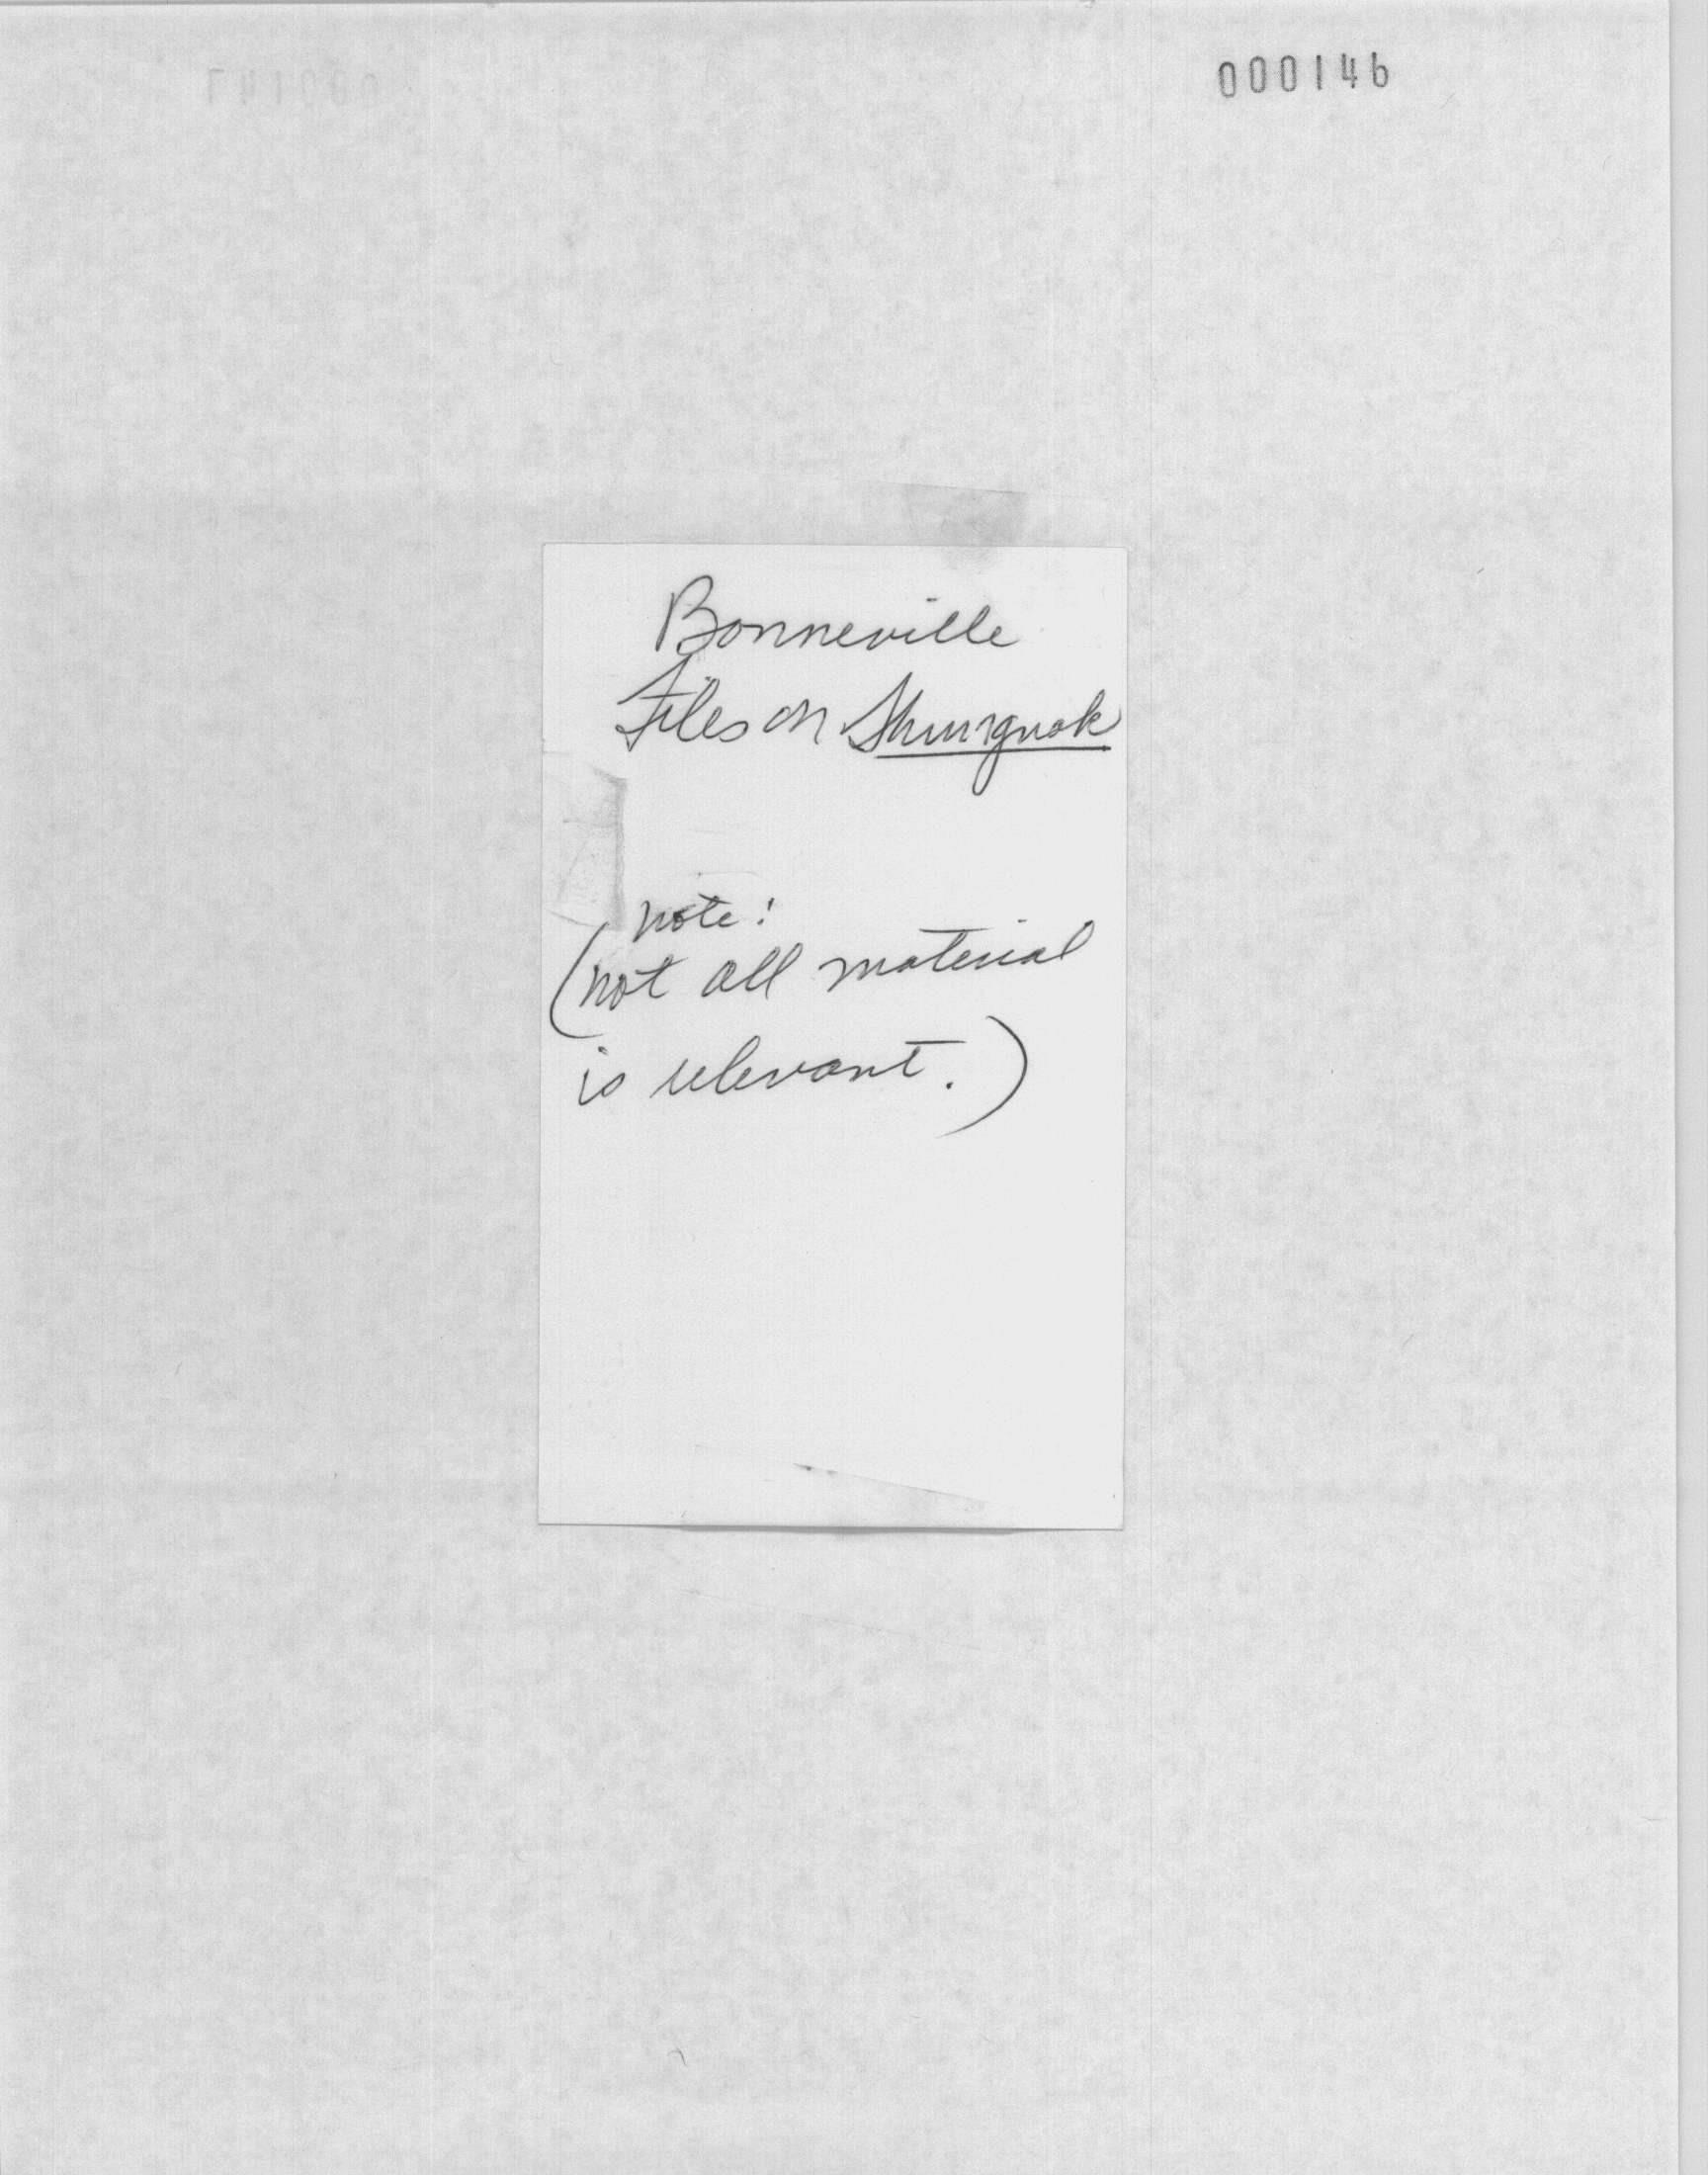 000146
Bonneville
Files on Shungnak
note:
(not all material
is relevant.)